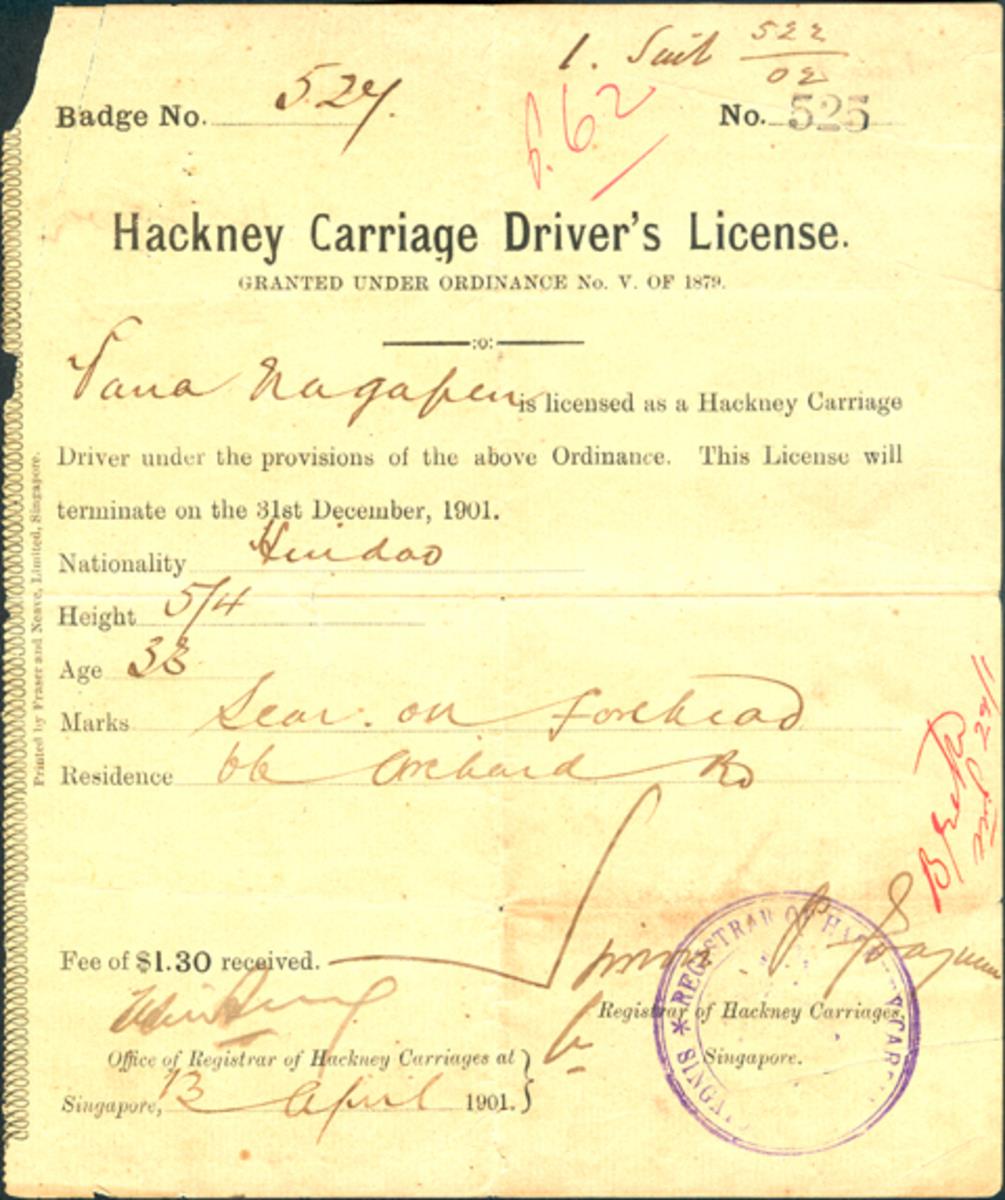 1. Suit 522/02
Badge No. 524. No. 525
p. 62
Hackney Carriage Driver's License.
GRANTED UNDER ORDINANCE No. V. OF 1879.
:o:
Pana Nagapen is licensed as a Hackney Carriage
Driver under the provisions of the above Ordinance. This License will
terminate on the 31st December, 1901.
Nationality Hindoo
Height 5/4
Age 33
Marks Scar on forehead
Residence 66 Orchard Rd
Fee of $1.30 received.
Registrar of Hackney Carriages,
Singapore.
Office of Registrar of Hackney Carriages at
Singapore, 13 April 1901.
Printed by Fraser and Neave, Limited, Singapore.